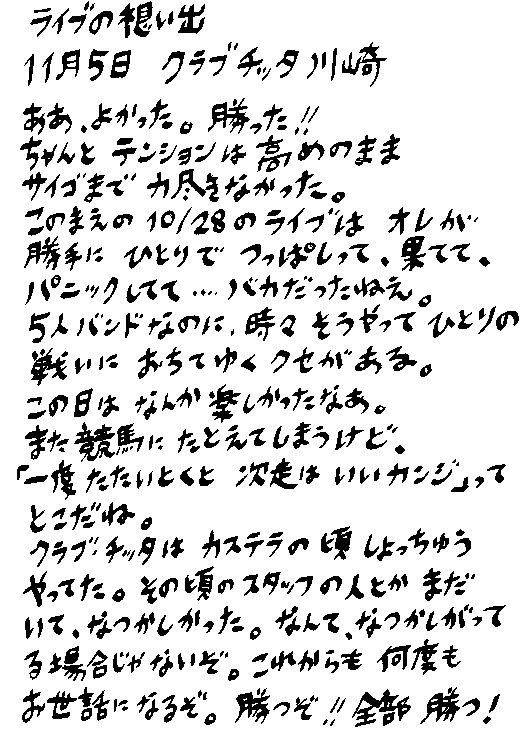 ライブの想い出
11月5日 クラブチッタ川崎
ああ、よかった。勝った!!
ちゃんと テンションは 高めのまま
サイゴまで 力尽きなかった。
このまえの 10/28のライブは オレが
勝手に ひとりで つっぱしって、果てて、
パニックしてて‥‥バカだったねえ。
5人バンドなのに、時々 そうやって ひとりの
戦いに おちてゆく クセがある。
この日は なんか 楽しかったなあ。
また 競馬に たとえてしまうけど、
「一度 たたいとくと 次走は いいカンジ」って
とこだね。
クラブ・チッタは カステラの 頃 しょっちゅう
やってた。その頃の スタッフの人とか まだ
いて、なつかしかった。なんて、なつかしがって
る場合じゃないぞ。これからも 何度も
お世話になるぞ。勝つぞ!! 全部 勝つ!